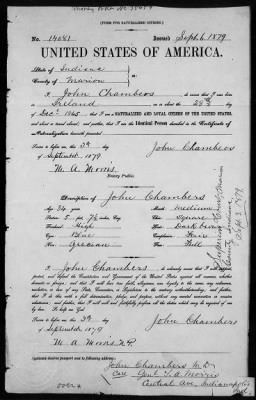 [FORM FOR NATURALIZED CITIZEN.]
No. 14081 Issued Sept. 6, 1879
UNITED STATES OF AMERICA.
State of Indiana
County of Marion
I, John Chambers
born in Ireland on or about the 28th day
of Dec. 1845 that I am a NATURALIZED AND LOYAL CITIZEN OF THE UNITED STATES,
and about to travel abroad; and further, that I am the identical Person described in the Certificate of
Naturalization herewith presented.
Sworn to before me this 3rd
of September 1879
John Chambers
W. A. Morris
Notary Public.
Description of John Chambers
Age 34 years
Mouth Medium
Stature 5 feet 7½ inches, Eng.
Chin Square
Forehead High
Hair Dark brown
Eyes Blue
Complexion Fair
Nose Grecian
Face Full
Superior Court, Marion
County Indiana
Sept. 3 1879
I, John Chambers do solemnly swear that I will support,
protect, and defend the Constitution and Government of the United States against all enemies, whether
domestic or foreign; and that I will bear true faith, allegiance, and loyalty to the same, any ordinance,
resolution, or law of any State, Convention, or Legislature to the contrary notwithstanding; and further,
that I do this with a full determination, pledge, and purpose, without any mental reservation or evasion
whatsoever; and further, that I will well and faithfully perform all the duties which may be required of
me by law. So help me God.
Sworn to before me this 3rd
of September 1879
John Chambers
W. A. Morris N.P.
Applicant desires passport to be sent to following address:
John Chambers M.D.
Care Genl. T. A. Morris
Central Ave Indianapolis
Ind.